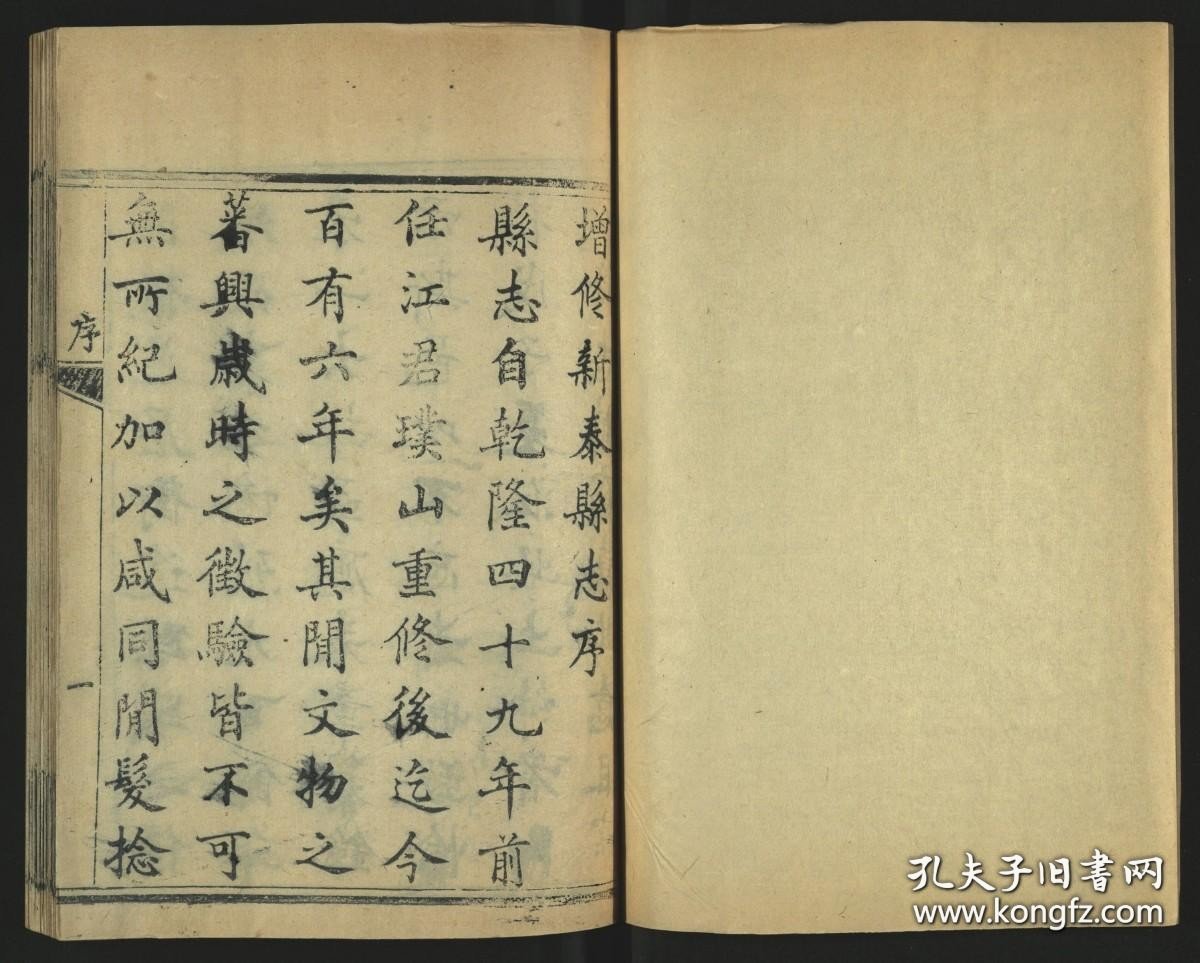 增修新泰縣志序
縣志自乾隆四十九年前
任江君璞山重修後迄今
百有六年矣其閒文物之
蕃興歲時之徵驗皆不可
無所紀加以咸同閒髮捻
序
一
孔夫子旧书网
www.kongfz.com